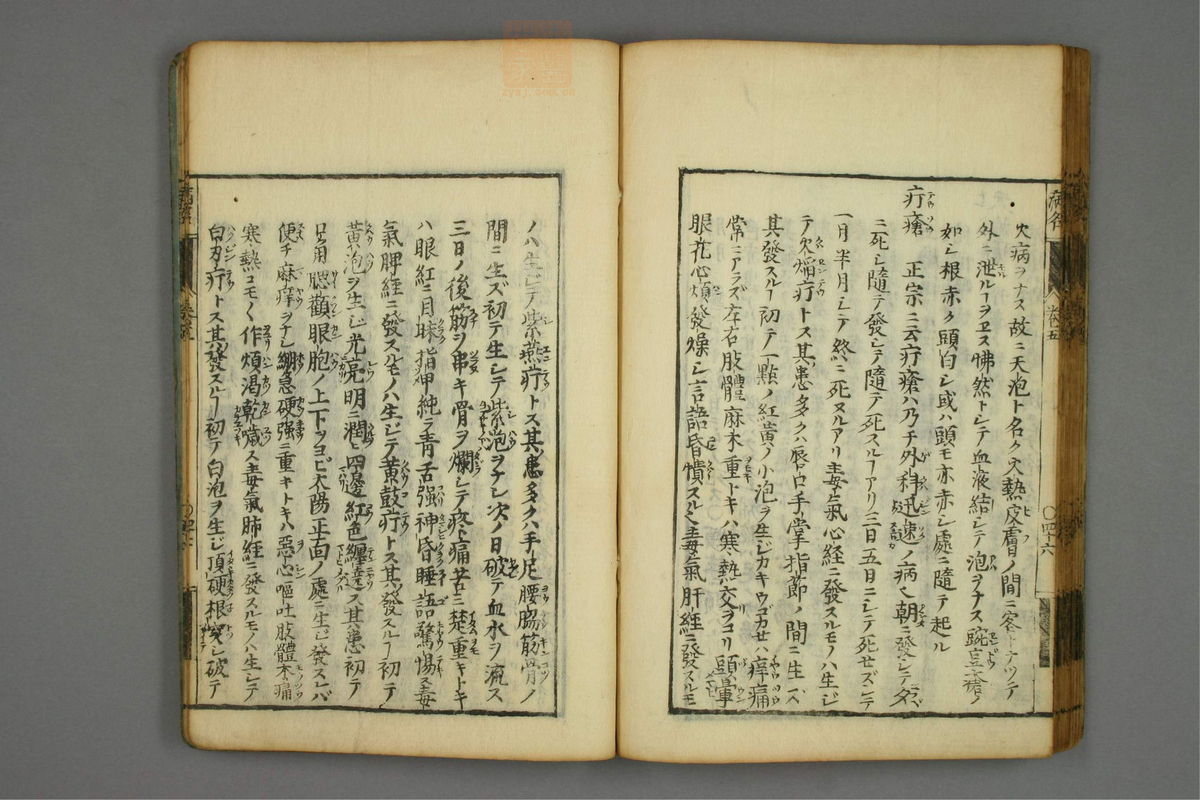 火病ヲナス故ニ天泡ト名ク火熱皮膚ノ間ニ客トナツテ
外ニ泄ルヿヲヱス怫然トシテ血液結シテ泡ヲナス豌豆瘡ノ
如シ根赤ク頭白シ或ハ頭モ亦赤シ處ニ隨テ起ル
疔瘡 正宗ニ云疔瘡ハ乃チ外科迅速ノ病也朝ニ發シテ夕
ニ死シ隨テ發シテ隨テ死スルヿアリ三日五日ニシテ死セズシテ
一月半月シテ終ニ死スルアリ毒氣心経ニ發スルモノハ生ジ
テ火焔疔トス其患多クハ唇口手掌指節ノ間ニ生ズ
其發スルヿ初テ一點ノ紅黄ノ小泡ヲ生ジカキウゴカセバ痒痛
常ニアラズ左右肢體麻木重トキハ寒熱交ヲコリ頭暈
眼花心煩發燥シ言語昏憒スル也毒氣肝経ニ發スルモ
ノハ生シテ紫燕疔トス其患多クハ手足腰脇筋骨ノ
間ニ生ズ初テ生シテ紫泡ヲナシ次ノ日破テ血水ヲ流ス
三日ノ後筋ヲ串キ骨ヲ爛シテ疼痛苦楚重キトキ
ハ眼紅ニ目昧指甲純ラ青舌强神昏睡語驚惕ス毒
氣脾経ニ發スルモノハ生ジテ黄鼓疔トス其發スルヿ初テ
黄泡ヲ生ジ光亮明ニ潤ヒ四邊紅色纏遶ス其患初テ
口角腮顴眼胞ノ上下ヲヨビ太陽正面ノ處ニ生ジ發スレバ
便チ麻痒ヲナシ綳急硬强ニ重キトキハ惡心嘔吐肢體木痛
寒熱コモ〱作煩渇乾噦ス毒氣肺経ニ發スルモノハ生シテ
白刃疔トス其發スルヿ初テ白泡ヲ生ジ頂硬根突シ破テ